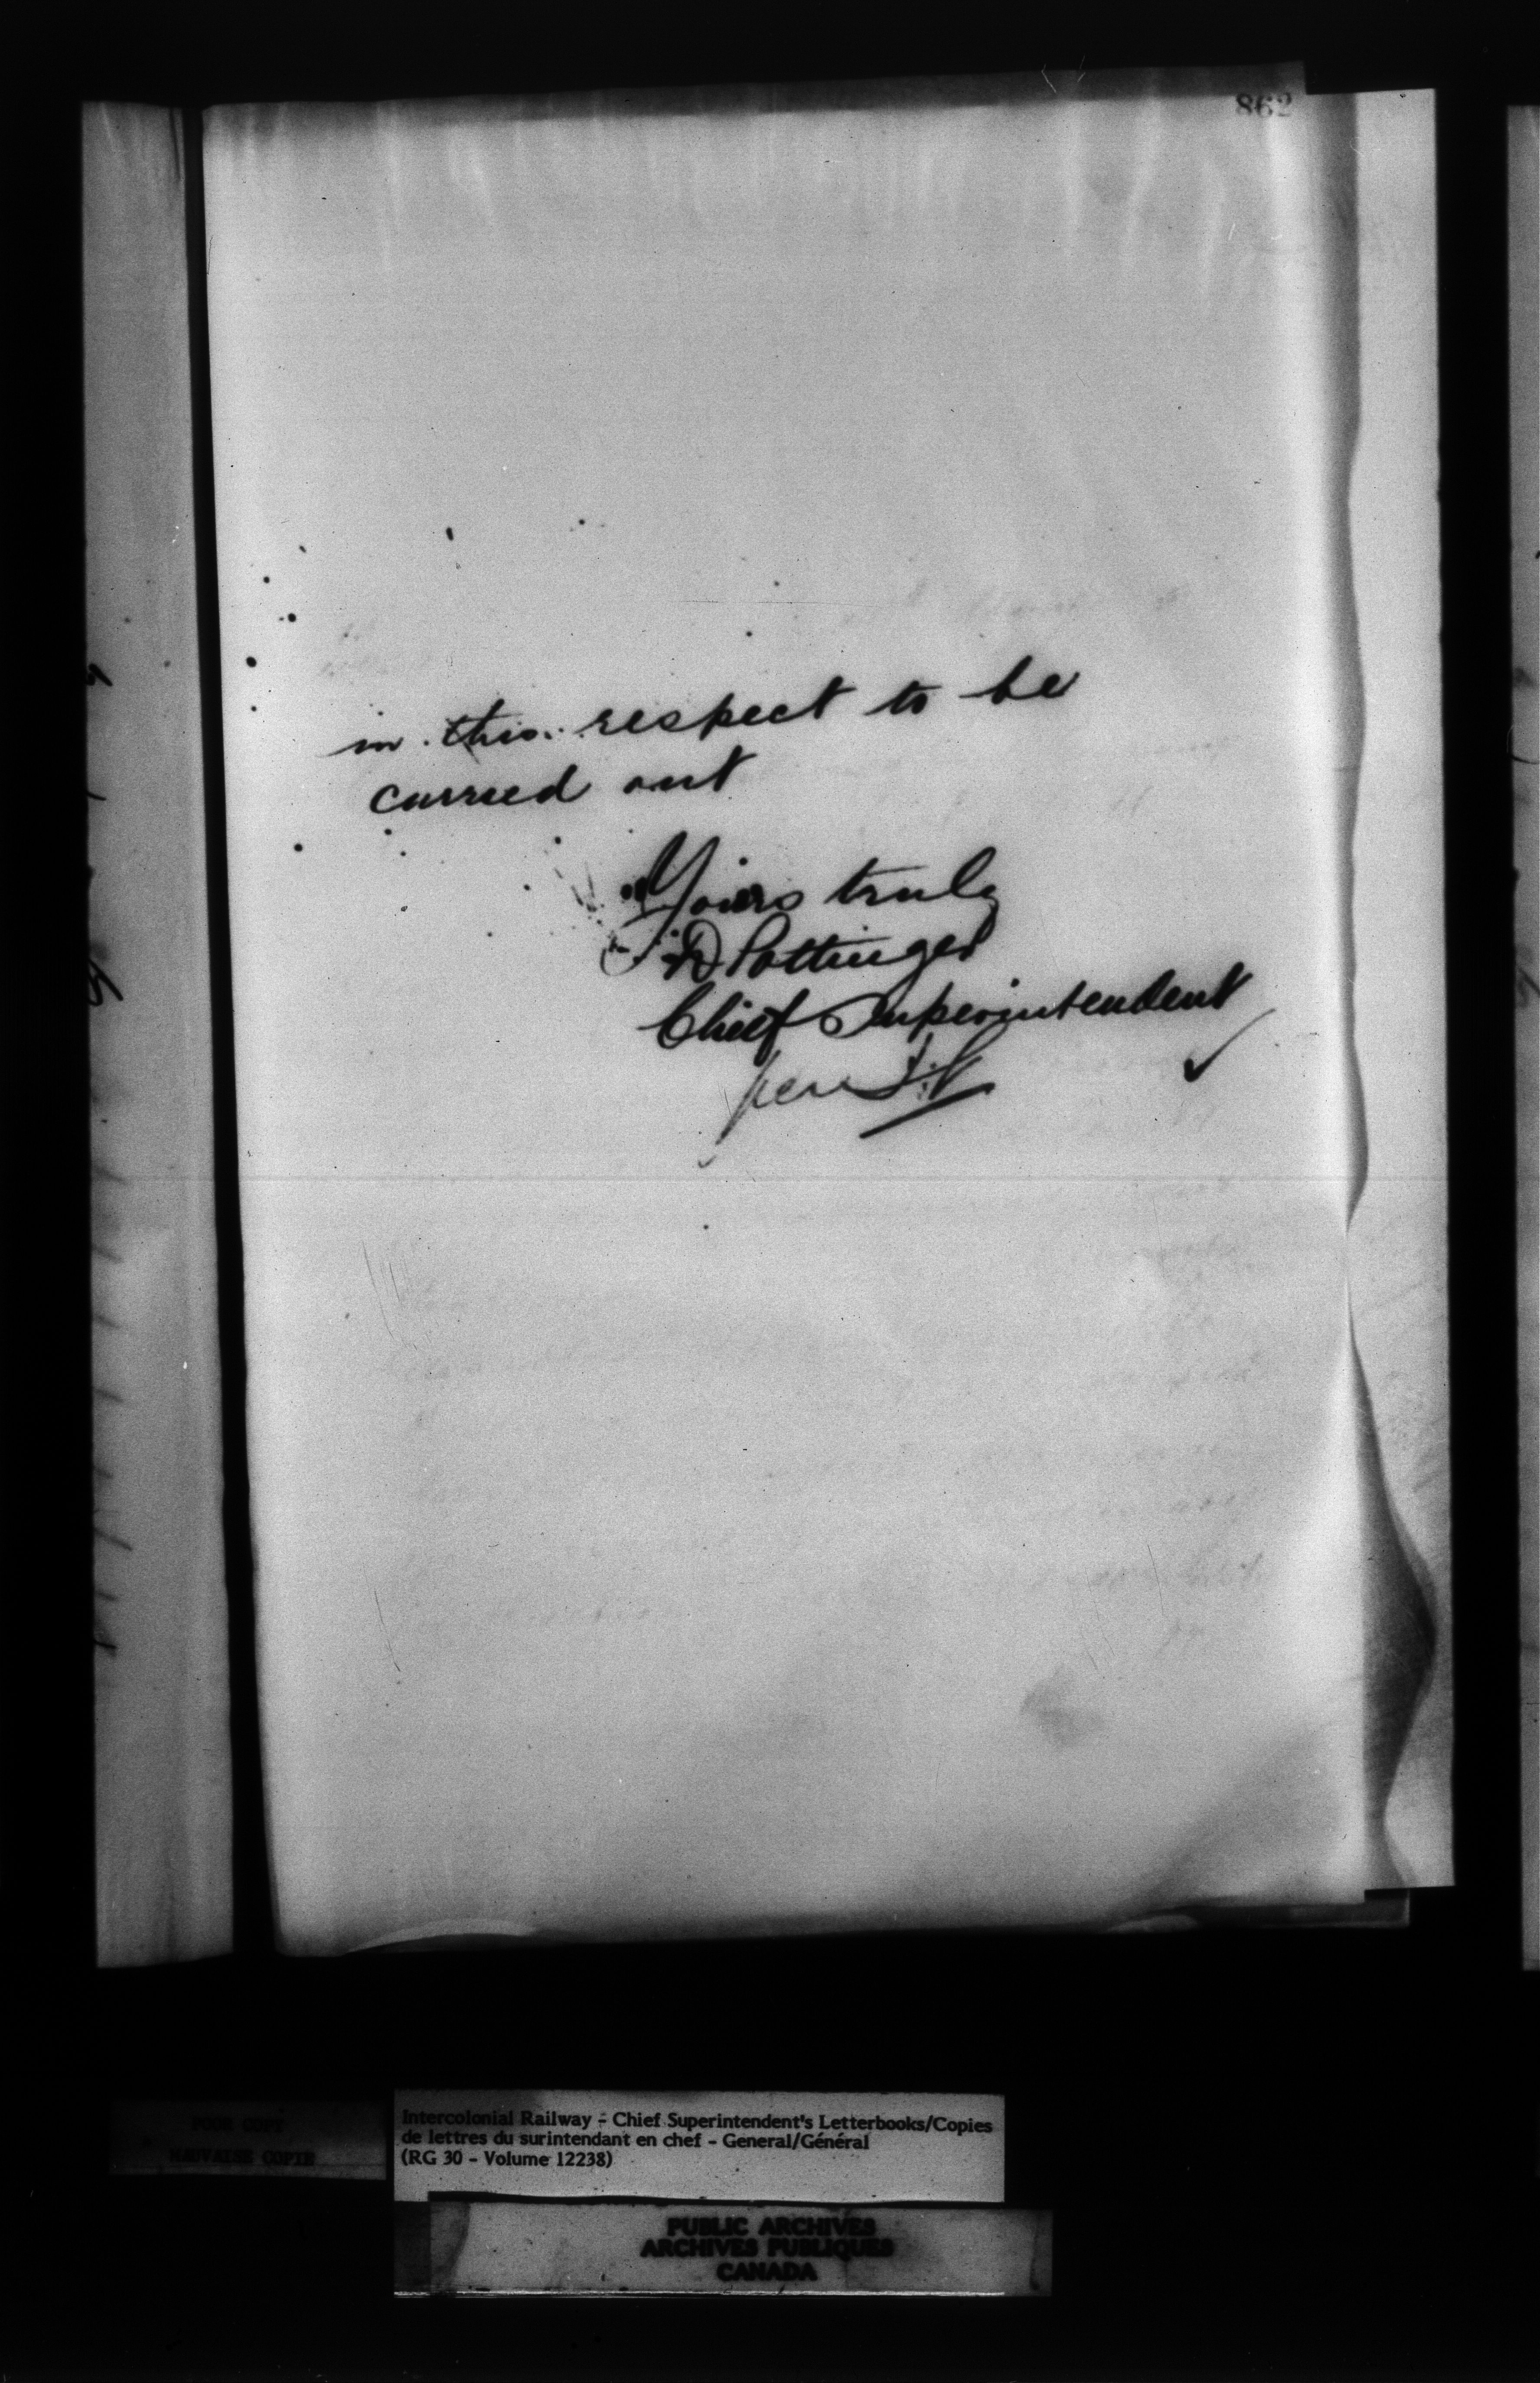 862
in this respect to be
carried out
Yours truly
D Pottinger
Chief Superintendent
per
POOR COPY
MAUVAISE COPIE
Intercolonial Railway - Chief Superintendent's Letterbooks/Copies
de lettres du surintendant en chef - General/Général
(RG 30 - Volume 12238)
PUBLIC ARCHIVES
ARCHIVES PUBLIQUES
CANADA